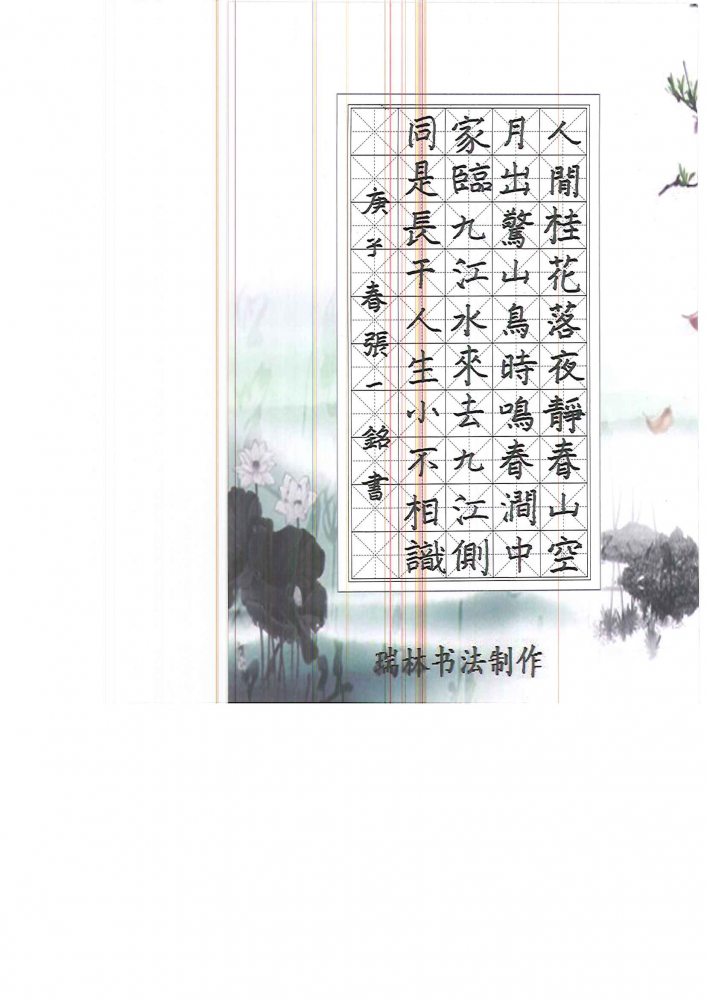 人閒桂花落夜靜春山空
月出驚山鳥時鳴春澗中
家臨九江水來去九江側
同是長干人生小不相識
庚子春張一銘書
瑞林书法制作